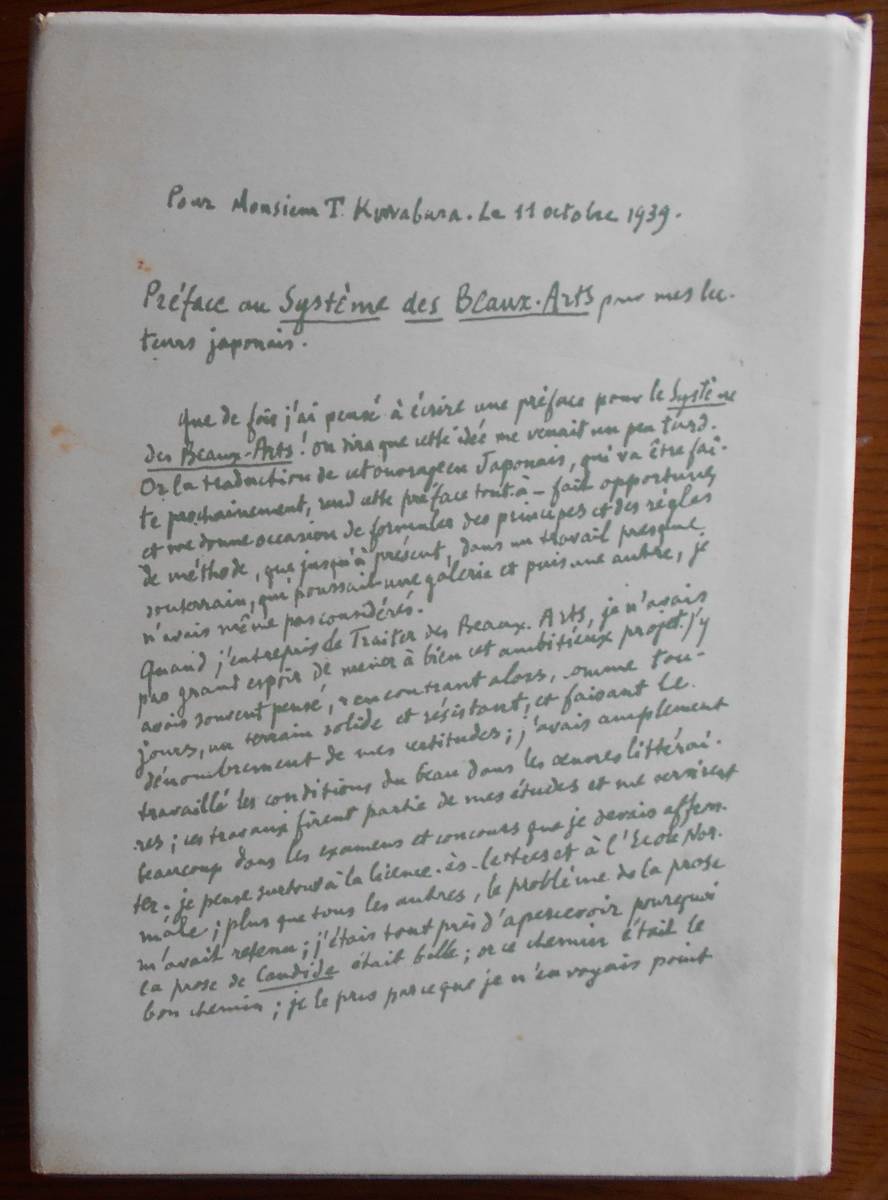 Pour Monsieur T. Kuwabara. Le 11 octobre 1939.
Préface au Système des Beaux-Arts pour mes lec-
teurs japonais.
Que de fois j'ai pensé à écrire une préface pour le Système
des Beaux-Arts! On dira que cette idée me venait un peu tard.
Or la traduction de cet ouvrage en Japonais, qui va être fai-
te prochainement, rend cette préface tout-à-fait opportune,
et me donne occasion de formuler des principes et des règles
de méthode, que jusqu'à présent, dans un travail presque
souterrain, qui poussait une galerie et puis une autre, je
n'avais même pas considérés.
Quand j'entrepris de Traiter des Beaux-Arts, je n'avais
pas grand espoir de mener à bien cet ambitieux projet. J'y
avais souvent pensé, rencontrant alors, comme tou-
jours, un terrain solide et résistant, et faisant le
dénombrement de mes certitudes; j'avais amplement
travaillé les conditions du beau dans les œuvres littérai-
res; ces travaux firent partie de mes études et me servirent
beaucoup dans les examens et concours que je devais affron-
ter. je pense surtout à la licence-ès-lettres et à l'Ecole Nor-
male; plus que tous les autres, le problème de la prose
m'avait retenu; j'étais tout près d'apercevoir pourquoi
la prose de Candide était belle; or ce chemin était le
bon chemin; je le pris parce que je n'en voyais point